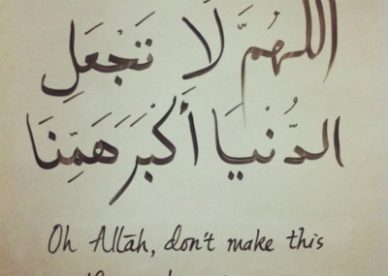 اللهُمَّ لَا تَجْعَلِ
الدُّنْيَا أَكْبَرَ هَمِّنَا
Oh Allāh, don't make this